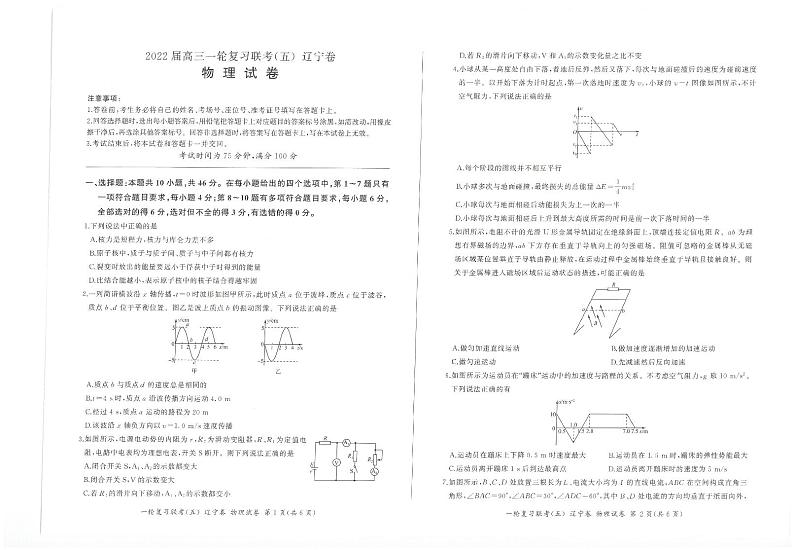 2022 届高三一轮复习联考(五) 辽宁卷
物 理 试 卷
注意事项:
1.答卷前,考生务必将自己的姓名、考场号、座位号、准考证号填写在答题卡上。
2.回答选择题时,选出每小题答案后,用铅笔把答题卡上对应题目的答案标号涂黑,如需改动,用橡皮
擦干净后,再选涂其他答案标号。回答非选择题时,将答案写在答题卡上,写在本试卷上无效。
3.考试结束后,将本试卷和答题卡一并交回。
考试时间为 75 分钟,满分 100 分
一、选择题:本题共 10 小题,共 46 分。在每小题给出的四个选项中,第 1~7 题只有
一项符合题目要求,每小题 4 分;第 8~10 题有多项符合题目要求,每小题 6 分,
全部选对的得 6 分,选对但不全的得 3 分,有选错的得 0 分。
1.下列说法中正确的是
A.核力是短程力,核力与库仑力差不多
B.原子核中,质子与质子间、质子与中子间都有核力
C.裂变时放出的能量要远小于俘获中子时得到的能量
D.比结合能越小,表示原子核中的核子结合得越牢固
2.一列简谐横波沿 x 轴传播,t=0 时波形如图甲所示,此时质点 a 位于波峰,质点 c 位于波谷,
质点 b、d 位于平衡位置。图乙是波上质点 b 的振动图像。下列说法正确的是
y/cm
5
0
-5
1 2 3 4 5 6 x/m
甲
y/cm
5
0
-5
乙
A.质点 b 与质点 d 的速度总是相同的
B.t=4 s 时,质点 a 沿波传播方向运动 4.0 m
C.经过 4 s,质点 a 运动的路程为 20 m
D.该波沿 x 轴负方向以 v=1.0 m/s 速度传播
3.如图所示,电源电动势的内阻为 r,R₂ 为滑动变阻器,R、R₁ 为定值电
阻,电路中电表均为理想电表,开关 S 断开。则下列说法正确的是
A.闭合开关 S,A₁、A₂ 的示数都变大
B.闭合开关 S,V 的示数变大
C.若 R₂ 的滑片向下移动,A₁、A₂ 的示数都变小
一轮复习联考(五) 辽宁卷 物理试卷 第 1 页(共 6 页)
D.若 R₂ 的滑片向下移动,V 和 A₁ 的示数变化量之比不变
4.小球从某一高度处自由下落,着地后反弹,然后又落下,每次与地面碰撞后的速度为碰前速度
的一半。以开始下落为计时起点,第一次落地时速度为 v₁,小球的 v-t 图像如图所示,不计
空气阻力,下列说法正确的是
A.每个阶段的图线并不相互平行
B.小球多次与地面碰撞,最终损失的总能量 ΔE=
C.小球每次与地面相碰后动能损失为上一次的一半
D.小球每次与地面相碰后上升到最大高度所需的时间是前一次下落时间的一半
5.如图所示,电阻不计的光滑 U 形金属导轨固定在绝缘斜面上,顶端连接定值电阻 R。ab 为理
想有界磁场的边界,ab 下方存在垂直于导轨向上的匀强磁场。阻值可忽略的金属棒从无磁
场区域某位置垂直于导轨由静止释放,在运动过程中金属棒始终垂直于导轨且接触良好。则
关于金属棒进入磁场区域后运动状态的描述,可能正确的是
A.做匀加速直线运动
B.做加速度逐渐增加的加速运动
C.做匀速运动
D.先减速然后反向加速
6.如图所示为运动员在“蹦床”运动中的加速度与路程的关系。不考虑空气阻力,g 取 10 m/s²。
下列说法正确的有
A.运动员在蹦床上下降 0.5 m 时速度最大
B.运动员在 1.5 m 时,蹦床的弹性势能最大
C.运动员离开蹦床 1 s 后到达最高点
D.运动员离开蹦床时的速度为 5 m/s
7.如图所示,B、C、D 处放置三根长为 L、电流大小均为 I 的直线电流,ABC 在空间构成直角三
角形,∠BAC=90°,∠ABC=30°,∠ADC=60°,其中 B、D 处电流的方向均垂直于纸面向外,
一轮复习联考(五) 辽宁卷 物理试卷 第 2 页(共 6 页)